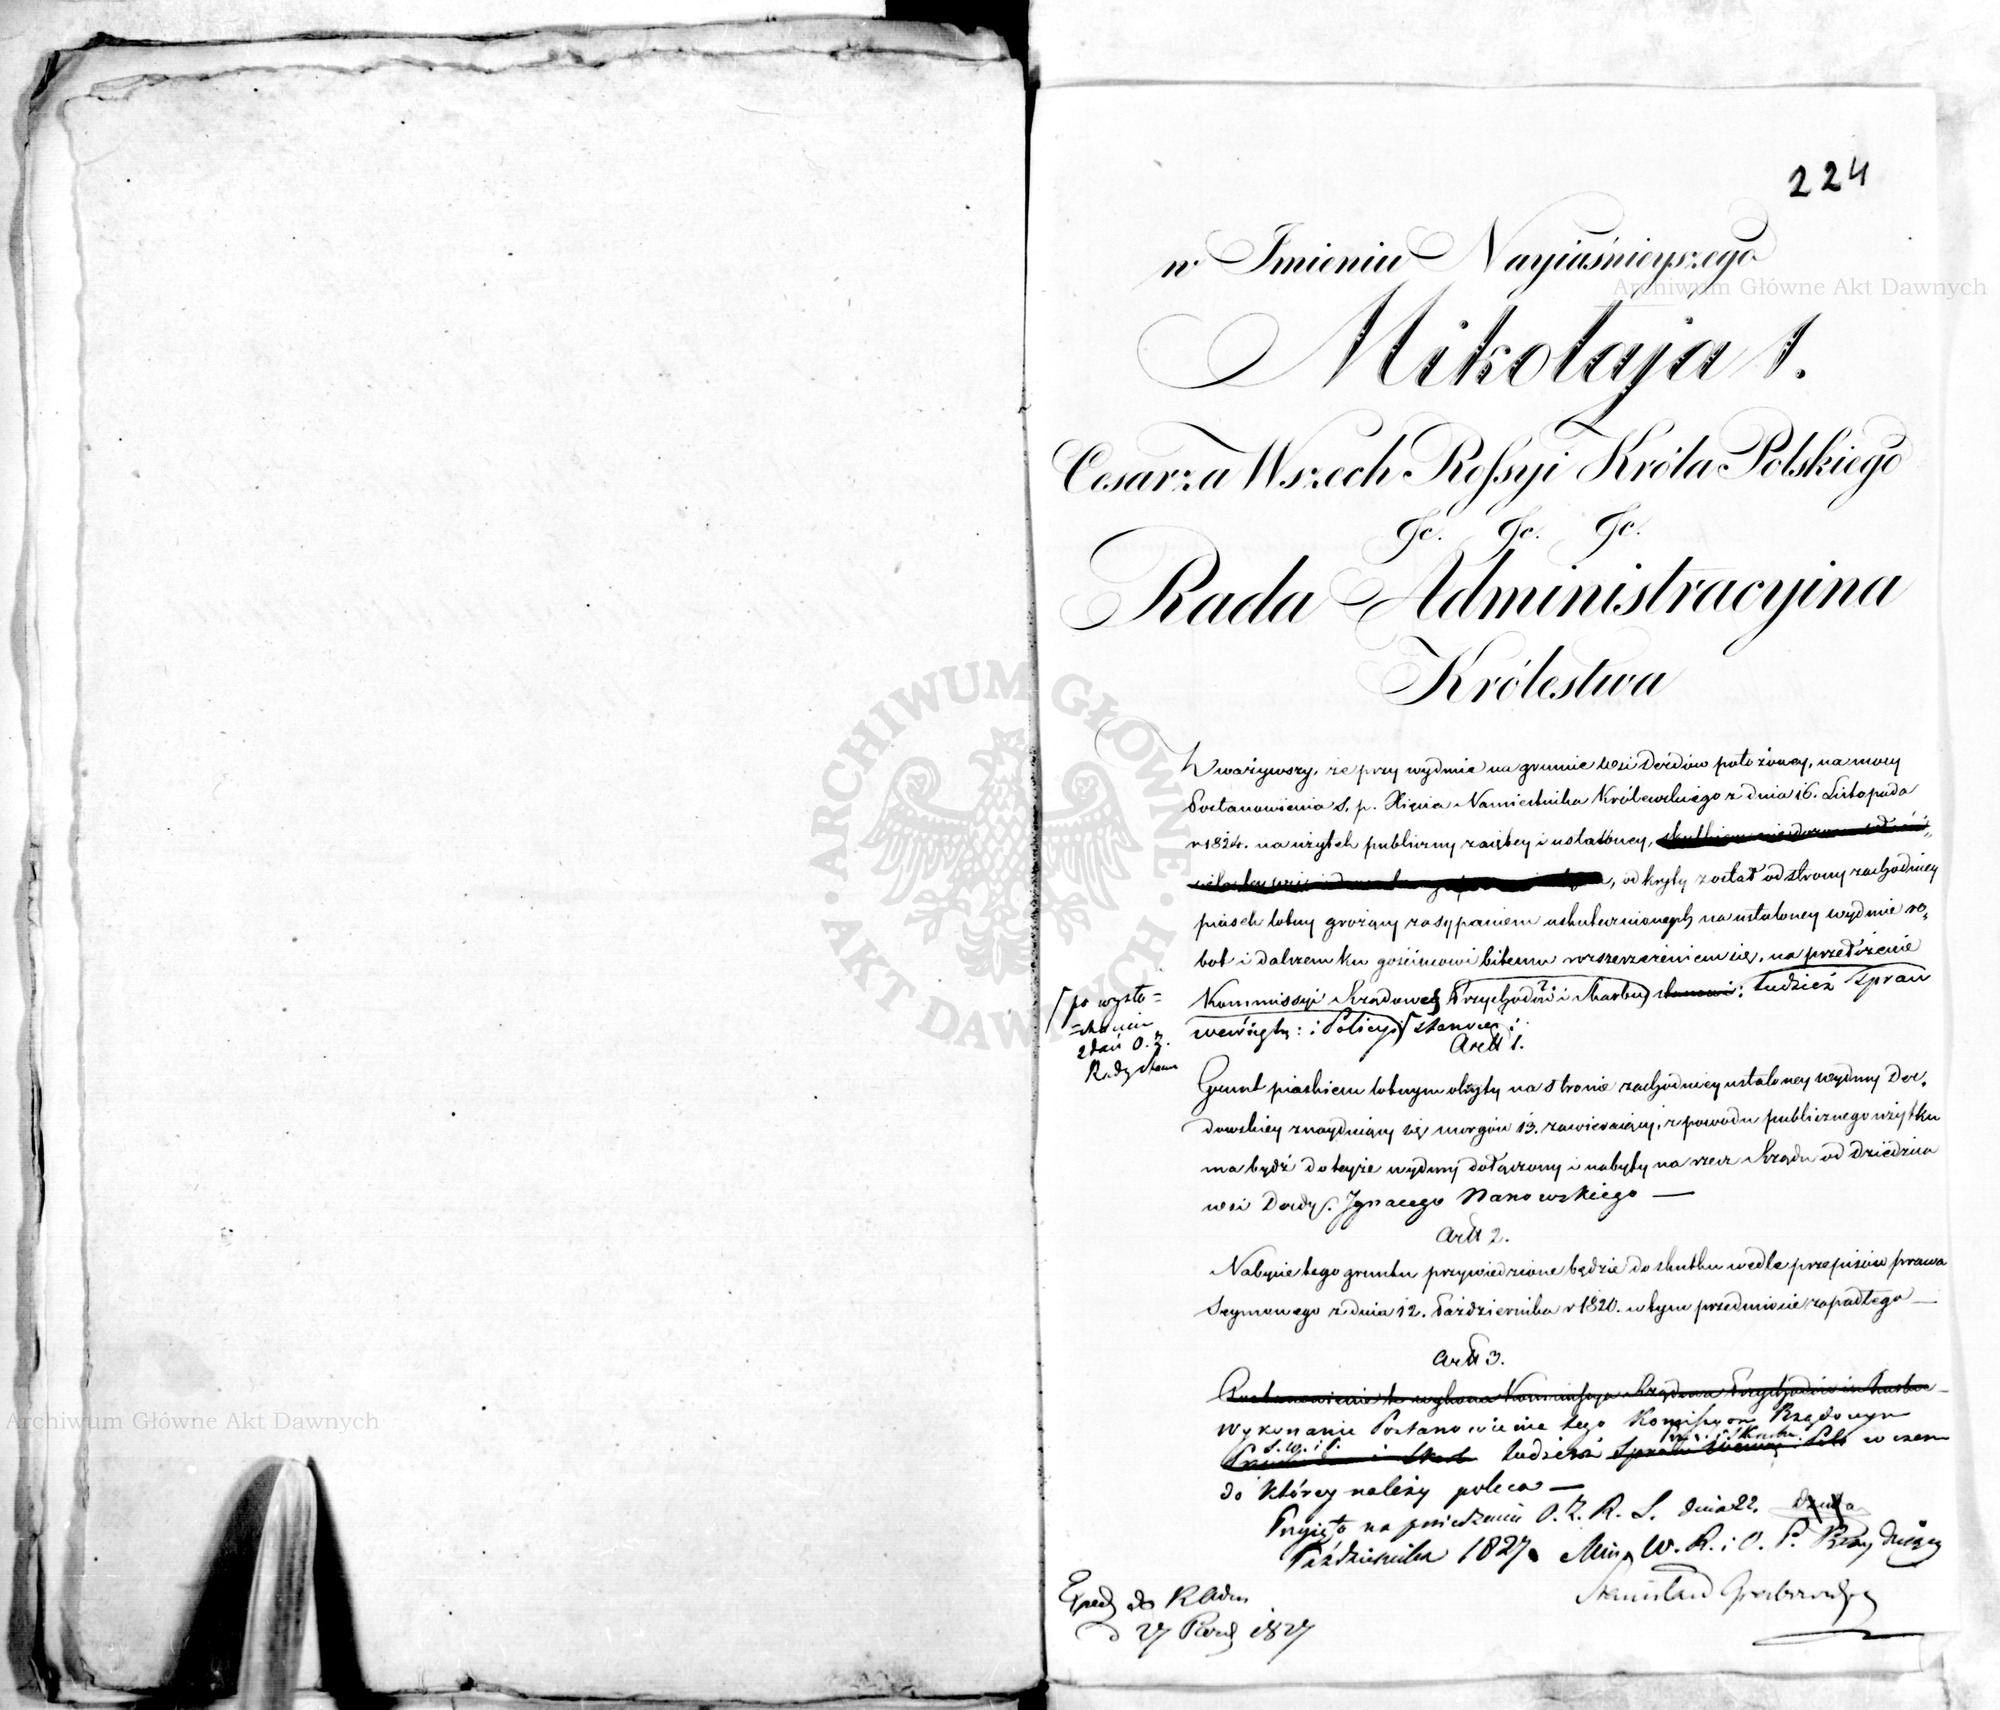 224
w Imieniu Nayjaśnieyszego
Mikołaja 1.
Cesarza Wszech Rossyi Króla Polskiego
&c. &c. &c.
Rada Administracyina
Królestwa
Zważywszy, że przy wydmie na gruncie wsi Dordów położoney, na mocy
Postanowienia ś. p. Xięcia Namiestnika Królewskiego z dnia 16. Listopada
r 1824. na użytek publiczny zajętey i ustaloney,
odkryty został od strony zachodniey
piasek lotny grożący zasypaniem uskutecznionych na ustaloney wydmie ro-
bot i dalszem ku gościńcowi bitemu rozszerzeniem się, na przełożenie
Kommissyi Rządowey Przychodów i Skarbu stanowi: tudzież Spraw
wewnętr: i Policyi stanowi:
po wysłu=
=chaniu
zdań O. Z.
Rady Stanu
Artt 1.
Grunt piaskiem lotnym okryty na stronie zachodniey ustaloney wydmy Dor-
dowskiey znayduiący się morgów 13. zawieraiący, z powodu publicznego użytku
ma bydź do teyże wydmy dołączony i nabyty na rzecz Rządu od dziedzica
wsi Dordy. Ignacego Nanowskiego —
Artt 2.
Nabycie tego gruntu przywiedzione będzie do skutku wedle przepisów prawa
Seymowego z dnia 12. Października r 1820. w tym przedmiocie zapadłego —
Artt 3.
Postanowienie to wykona Kommissya Rządowa Przychodów i Skarbu
Wykonanie Postanowienia tego Komissyom Rządowym
S. W. i P. tudzież Prz: i Skarbu w czem
do którey należy poleca —
Przyjęto na posiedzeniu O. Z. R. S. dnia 22.
Października 1827. Min. W. R. i O. P. Prezyduiący
Stanisław Grabowski
Exped do R Adm
d 27 Paźd 1827
Archiwum Główne Akt Dawnych
Archiwum Główne Akt Dawnych
ARCHIWUM GŁÓWNE · AKT DAWNYCH ·